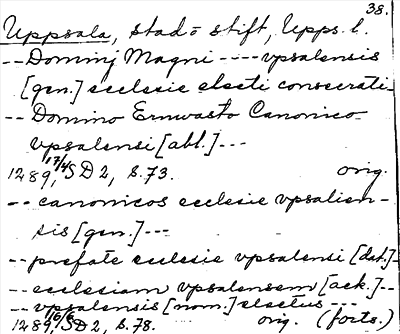 38.
Uppsala, stad o stift, Upps. l.
-- Dominj Magni ---- vpsalensis
[gen.] ecclesie electi consecrati --
-- Domino Ernvasto Canonico
vpsalensi [abl.] ---
1289 17/4, SD 2, s. 73. orig.
-- canonicos ecclesie vpsalien-
sis [gen.] ---
-- prefate ecclesie vpsalensi [dat.] --
-- ecclesiam vpsalensem [ack.] --
-- vpsalensis [nom.] electus ---
1289 16/6, SD 2, s. 78. orig. (forts.)